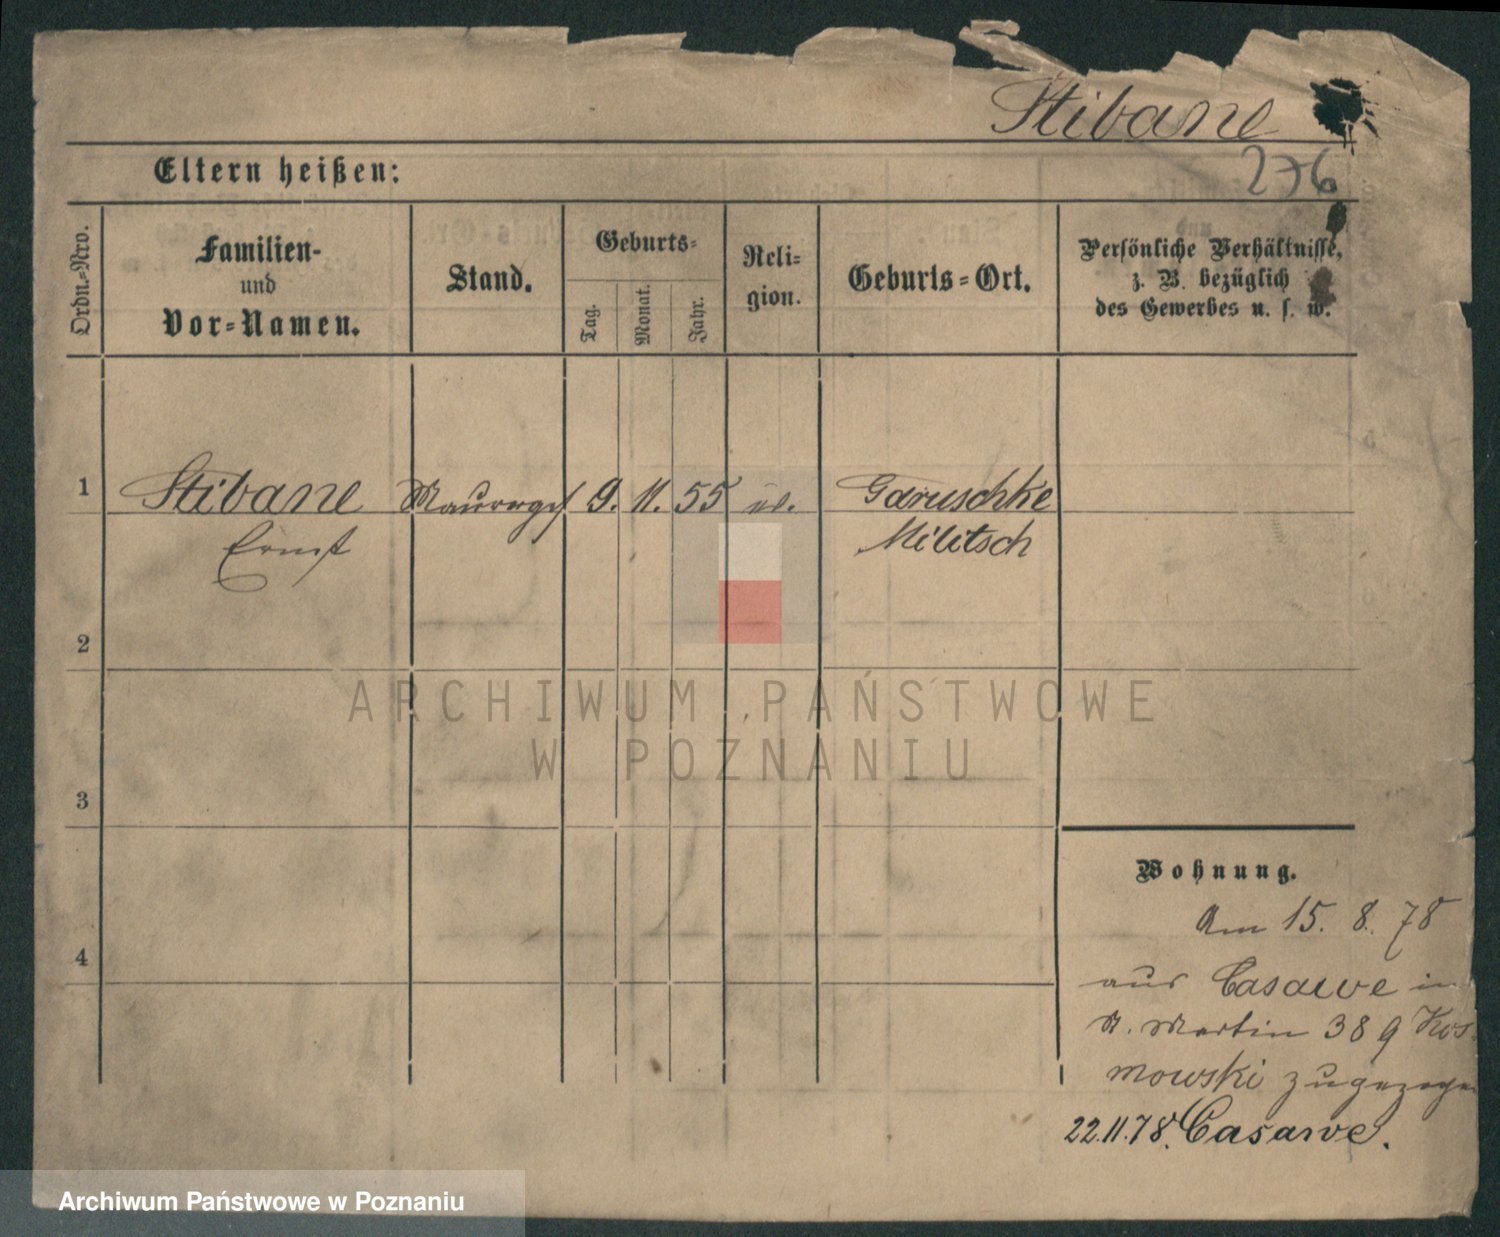 Stibane
276
Eltern heißen:
Ordn.-Nro.
Familien-
und
Vor-Namen.
Stand.
Geburts-
Tag.
Monat.
Jahr.
Reli-
gion.
Geburts-Ort.
Persönliche Verhältnisse,
z. B. bezüglich
des Gewerbes u. s. w.
1 Stibane Maurerges 9. 11. 55 Garuschke
Ernst Militsch
2
3
4
ARCHIWUM PAŃSTWOWE
W POZNANIU
Wohnung.
Am 15. 8. 78
aus Casawe in
St. Martin 38 g Kos-
mowski zugezogen
22.11.78. Casawe.
Archiwum Państwowe w Poznaniu